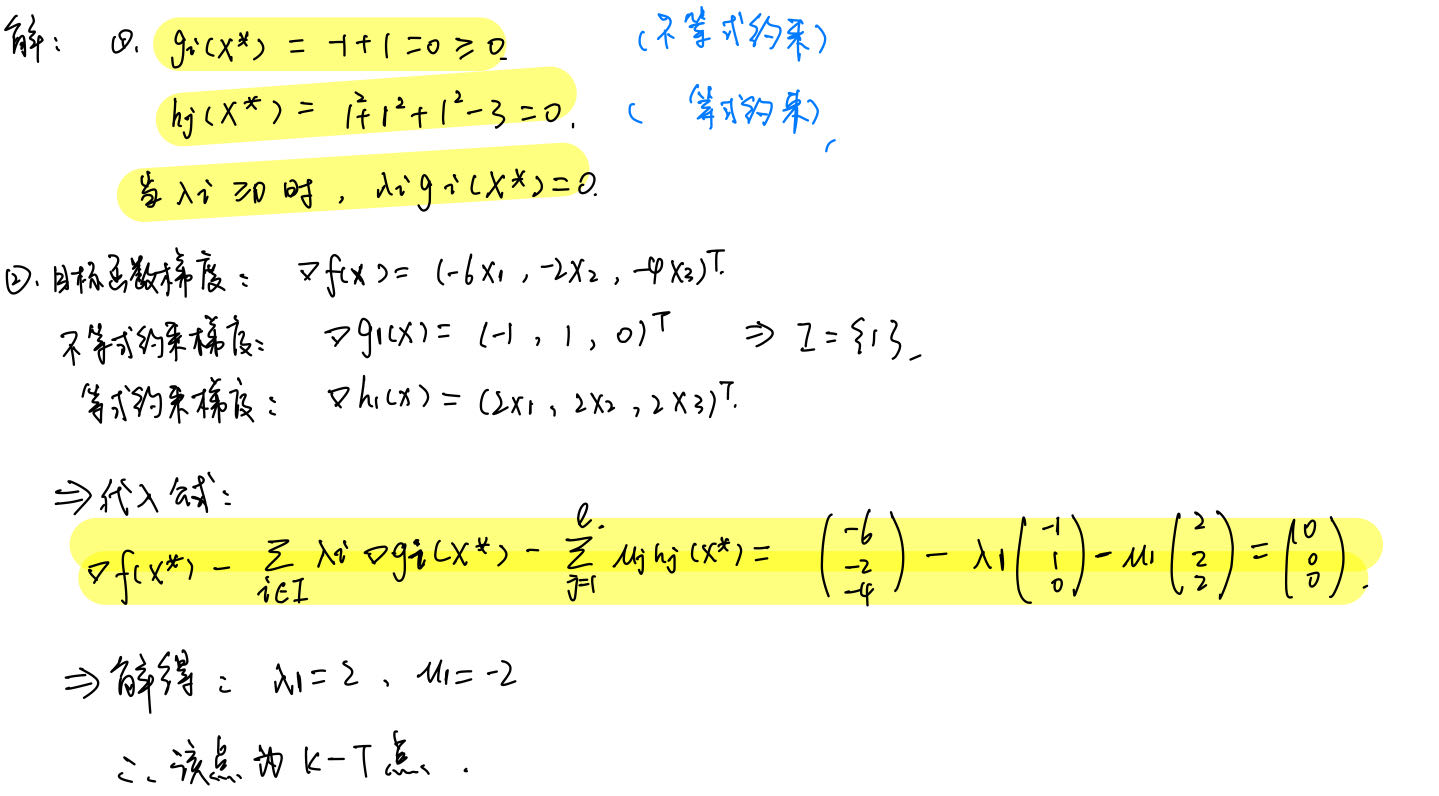 解： ①. gi(X*) = -1+1=0 ≥ 0. （不等式约束）
hj(X*) = 1²+1²+1²-3=0. （ 等式约束）
当 λi ≥0 时， λi gi(X*)=0.
②. 目标函数梯度： ∇f(x) = (-6x₁, -2x₂, -4x₃)ᵀ.
不等式约束梯度： ∇g₁(x) = (-1, 1, 0)ᵀ ⇒ I={1}
等式约束梯度： ∇h₁(x) = (2x₁, 2x₂, 2x₃)ᵀ.
⇒代入公式：
∇f(X*) - ∑_{i∈I} λi ∇gi(X*) - ∑_{j=1}^{l} μj hj(X*) = (-6, -2, -4)ᵀ - λ₁(-1, 1, 0)ᵀ - μ₁(2, 2, 2)ᵀ = (0, 0, 0)ᵀ.
⇒解得： λ₁=2、μ₁=-2
∴ 该点为 K-T点.